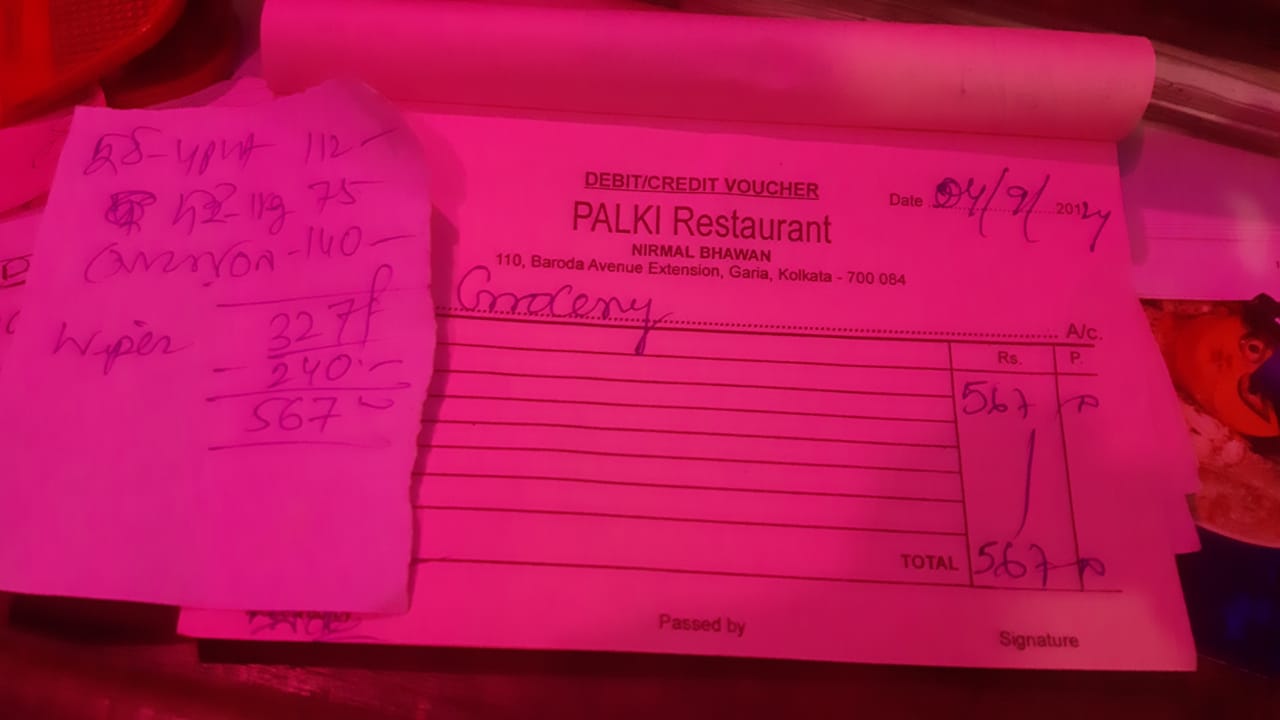 112
75
140
327
Wiper
240
567
DEBIT/CREDIT VOUCHER
Date 04/9/2024
PALKI Restaurant
NIRMAL BHAWAN
110, Baroda Avenue Extension, Garia, Kolkata - 700 084
Grocery A/c.
Rs. P.
567
TOTAL 567
Passed by
Signature